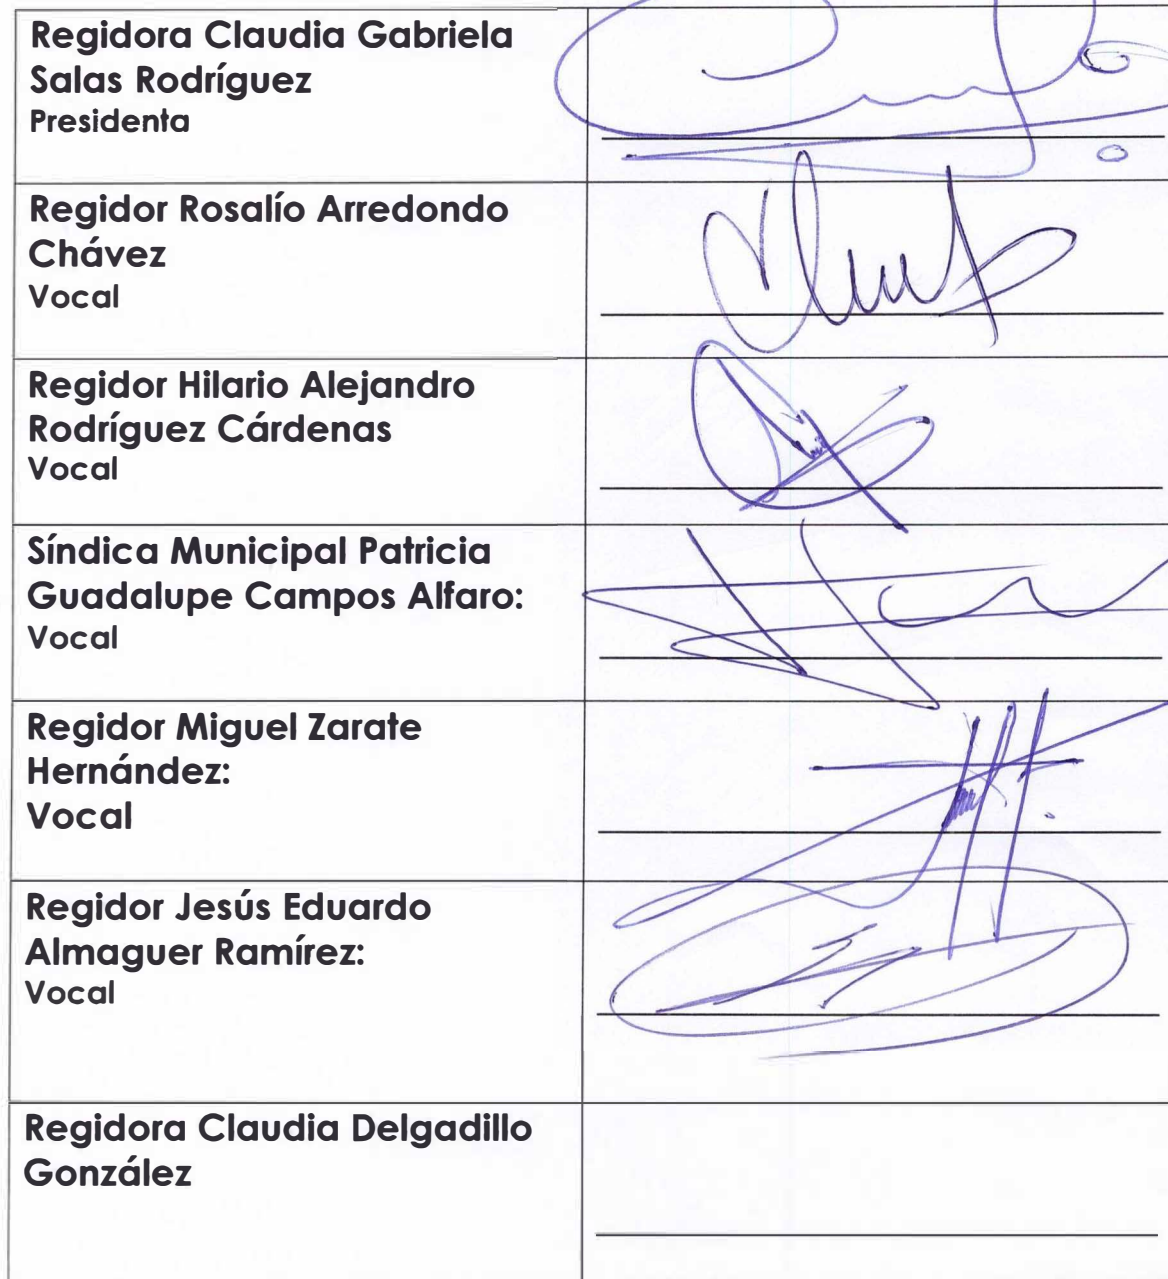 Regidora Claudia Gabriela
Salas Rodríguez
Presidenta
Regidor Rosalío Arredondo
Chávez
Vocal
Regidor Hilario Alejandro
Rodríguez Cárdenas
Vocal
Síndica Municipal Patricia
Guadalupe Campos Alfaro:
Vocal
Regidor Miguel Zarate
Hernández:
Vocal
Regidor Jesús Eduardo
Almaguer Ramírez:
Vocal
Regidora Claudia Delgadillo
González